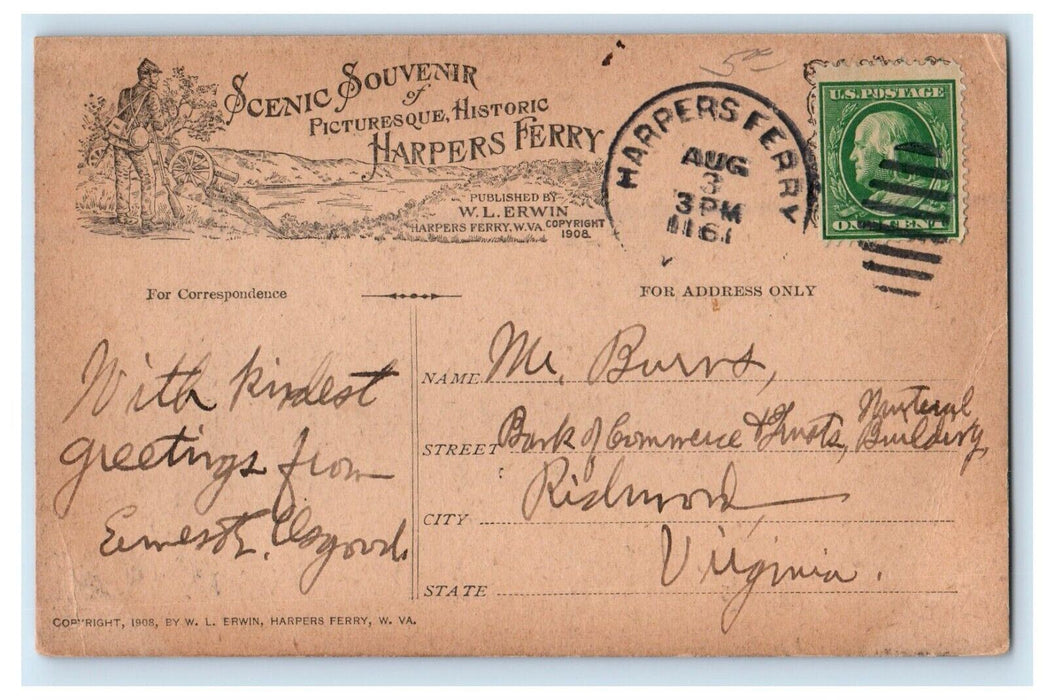 SCENIC SOUVENIR
of
PICTURESQUE, HISTORIC
HARPERS FERRY
PUBLISHED BY
W. L. ERWIN
HARPERS FERRY, W. VA. COPYRIGHT
1908
5.00
HARPERS FERRY
AUG
3
3 PM
U.S. POSTAGE
ONE CENT
For Correspondence
FOR ADDRESS ONLY
With kindest
greetings from
Ernest E. Osgood.
NAME Mr. Burns,
STREET Bank of Commerce & Trusts, Mutual Building,
CITY Richmond
STATE Virginia.
COPYRIGHT, 1908, BY W. L. ERWIN, HARPERS FERRY, W. VA.